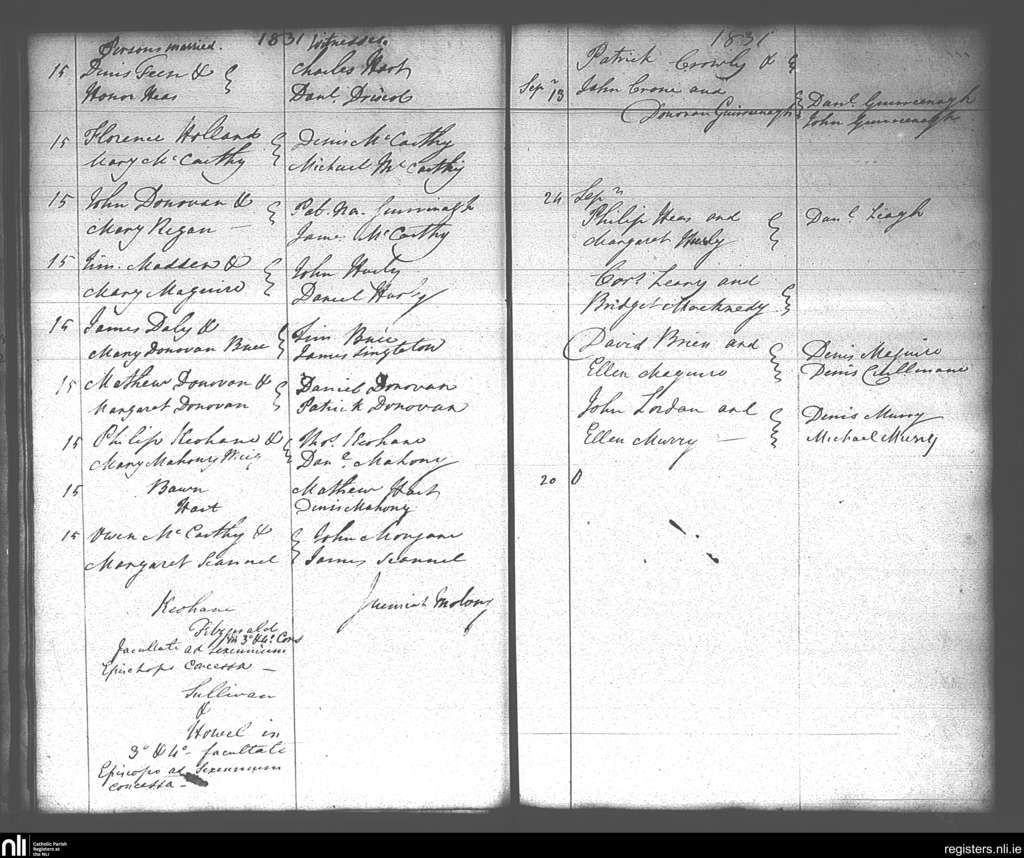 1831
Persons married. Witnesses.
15 Denis Feen & Charles Hart
Honor Heas Danl. Driscol
15 Florence Holland Denis McCarthy
Mary McCarthy Michael McCarthy
15 John Donovan &
Mary Regan — James McCarthy
15 Tim. Madden & John Hurly
Mary Maguire Daniel Hurly
15 James Daly & Tim
Mary Donovan James Singleton
15 Mathew Donovan & Daniel Donovan
Margaret Donovan Patrick Donovan
15 Philip Keohane & Thos. Keohane
Mary Mahony Danl. Mahony
15 Bawn Mathew Hart
Hart Denis Mahony
15 Owen McCarthy & John Mongane
Margaret Scannel James Scannel
Keohane Jeremiah
Fitzgerald
in 3o & 4o Cons
facultate ad Sexennium
Episcopo concessa —
Sullivan
&
Howel in
3o & 4o facultate
Episcopo ad Sexennium
concessa —
1831
Patrick Crowly &
Sepr 13 John Crone and
Donovan Guineenagh Danl. Guineenagh
John Guineenagh
24 Sepr
Philip Heas and Danl. Leagh
Margaret Hurly
Cors Leary and
Bridget
David Brien and Denis Maguire
Ellen Maguire Denis Cullinane
John Lordan and Denis Murry
Ellen Murry — Michael Murry
20 O
nli
Catholic Parish
Registers at
the NLI
registers.nli.ie